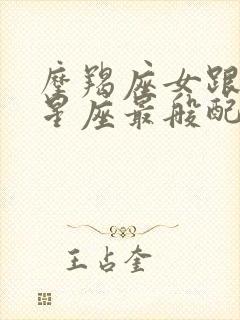 摩羯座女跟
星座最般配
王占奎